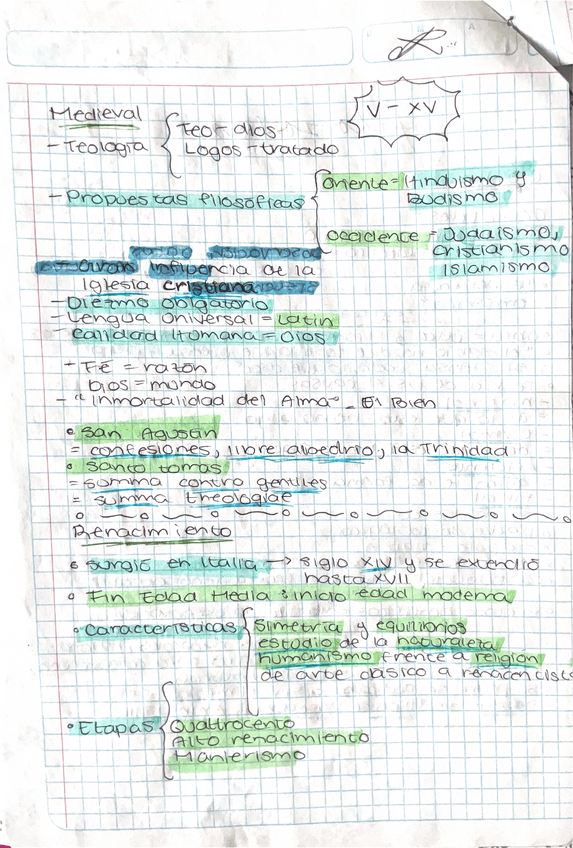 Medieval
V - XV
- Teología
Teo = dios
Logos - tratado
- Propuestas filosoficas
Oriente = Hinduismo y
Budismo
Occidente = Judaismo,
Cristianismo
Islamismo
Influencia de la
Iglesia cristiana
- Diezmo obligatorio
- Lengua Universal = Latin
- Calidad Humana = Dios
- Fé = razon
Dios = mundo
- "Inmortalidad del Alma" - El Bien
• San Agustin
= confesiones, libre albedrio, la Trinidad
• Santo tomas
= summa contro gentiles
= summa theologiae
Renacimiento
• Surgió en Italia → siglo XIV y se extendió
hasta XVII
• Fin Edad Media : inicio edad moderna
• Caracteristicas
Simetria y equilibrios
estudio de la naturaleza
humanismo frente a religion
de arte clasico a renacencista
• Etapas
Quattrocento
Alto renacimiento
Manierismo